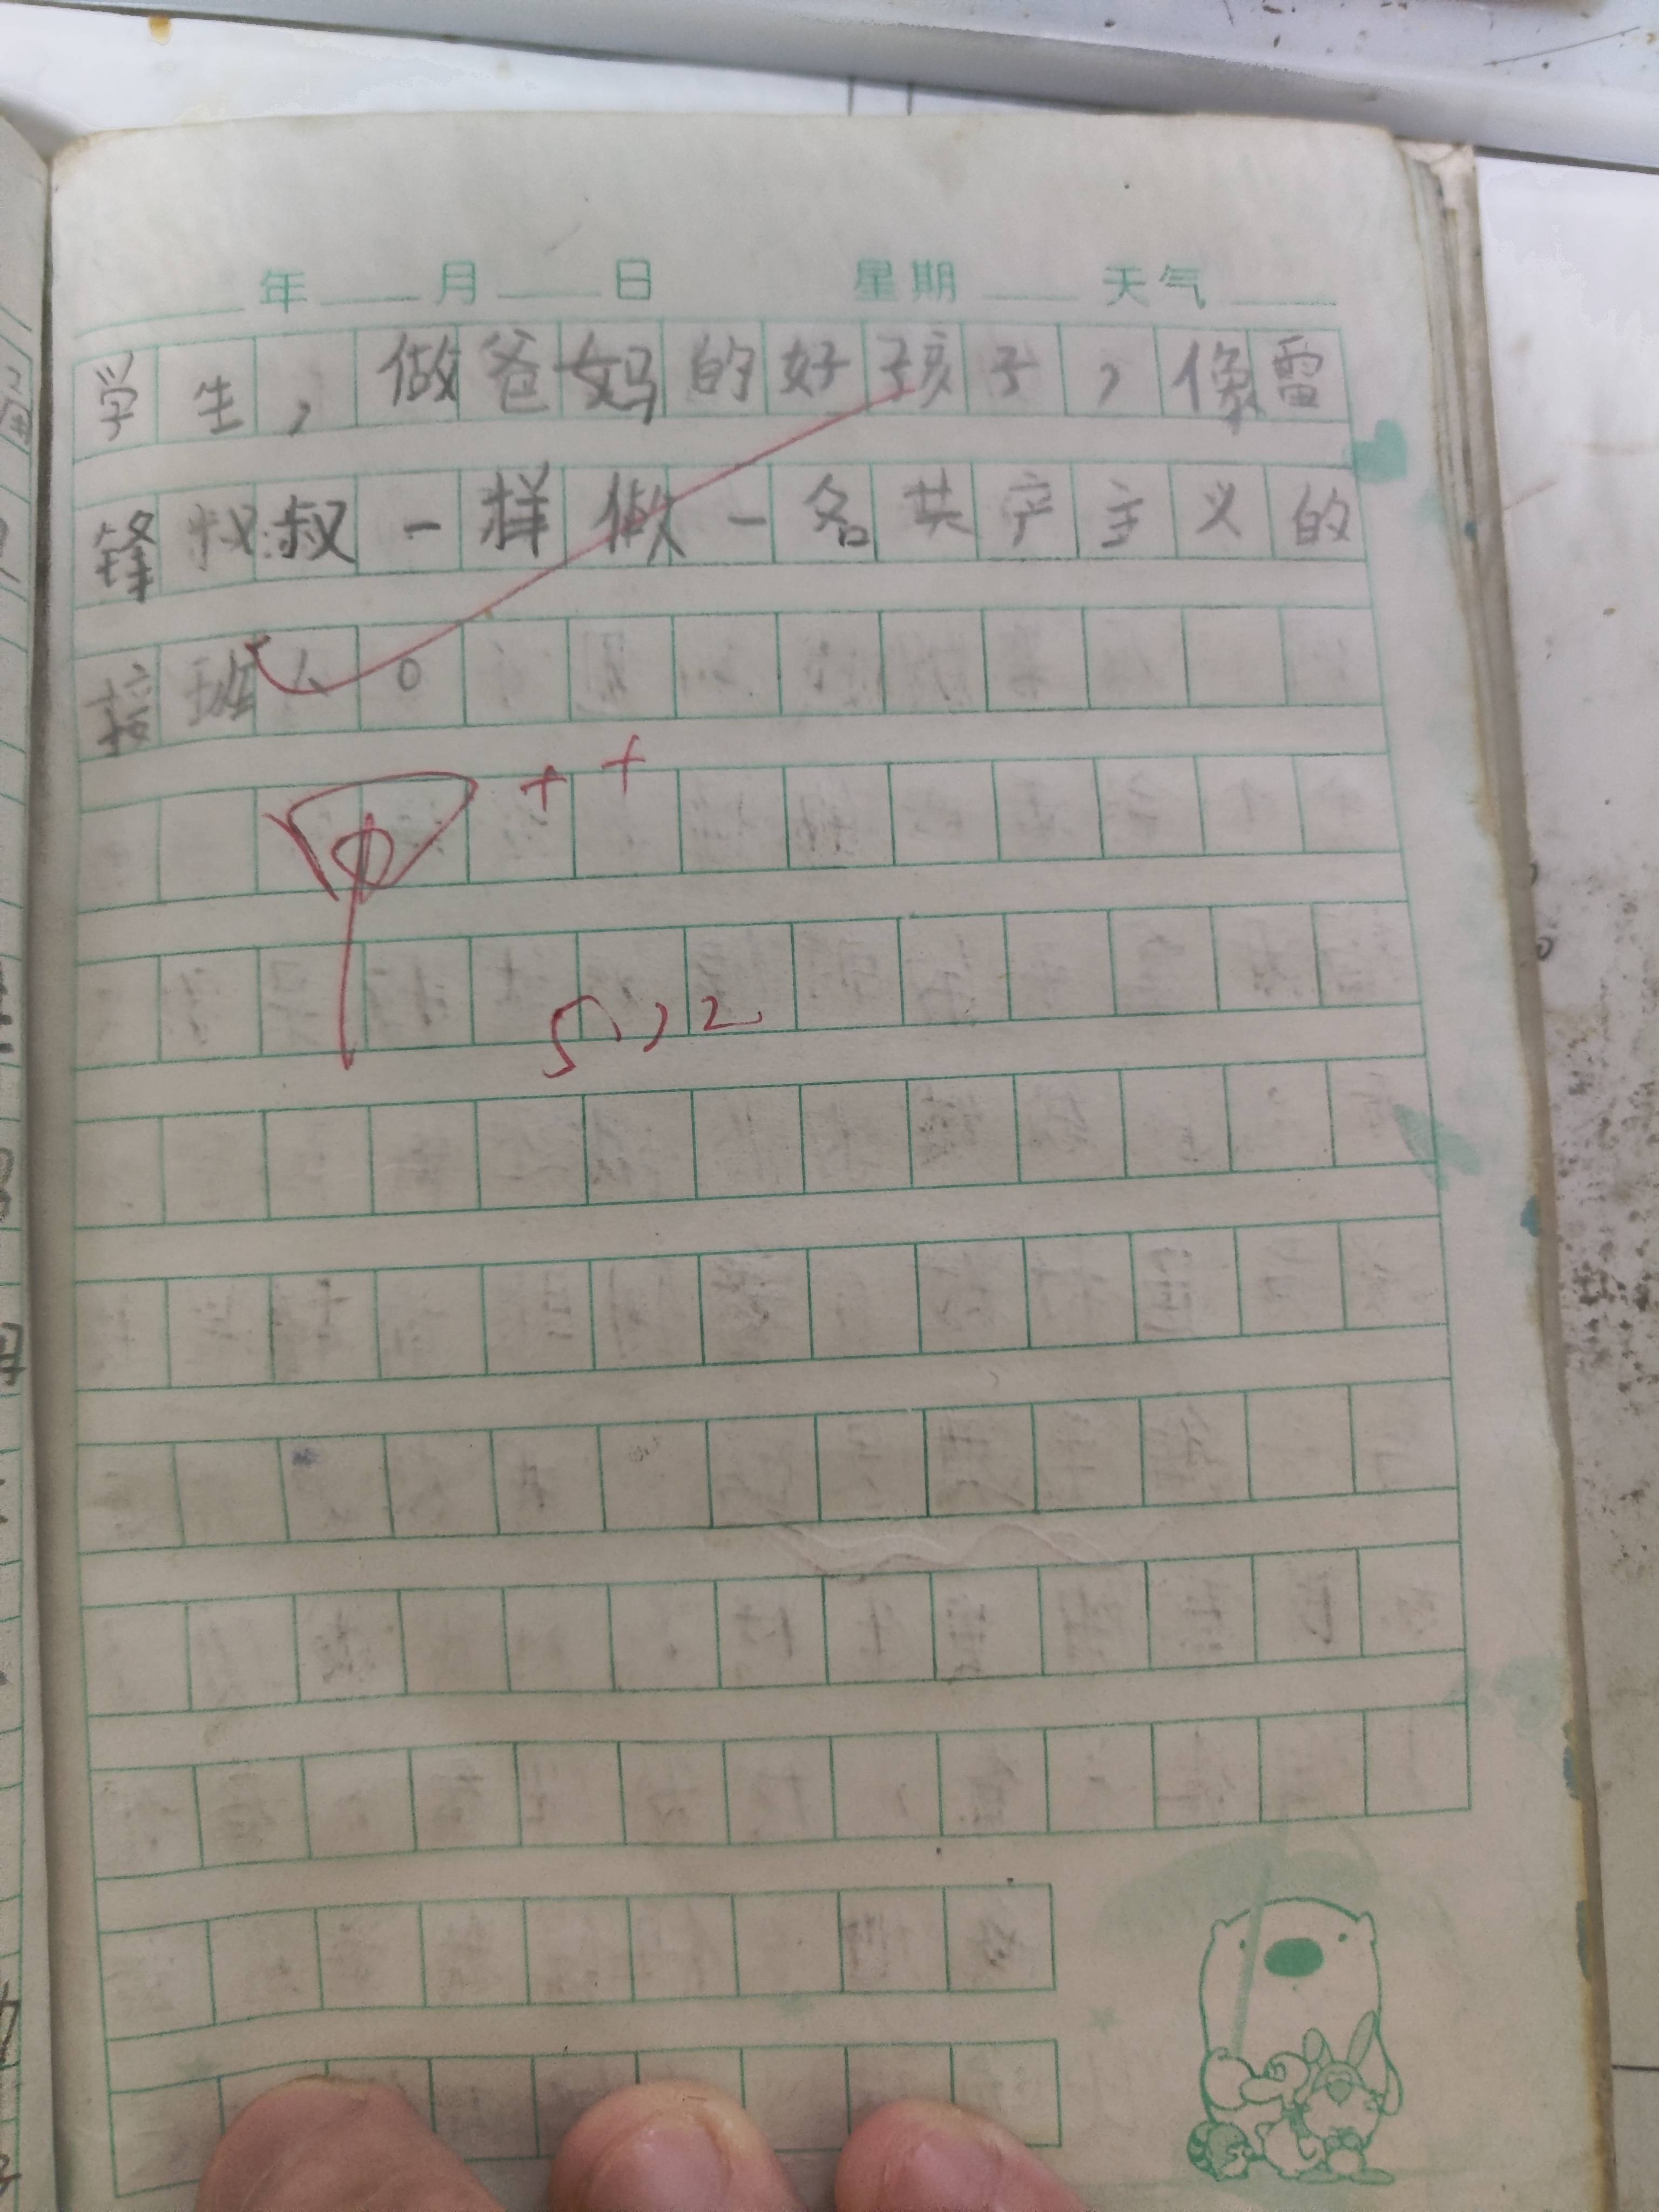 年 月 日 星期 天气
学生，做爸妈的好孩子，像雷
锋叔叔一样做一名共产主义的
接班人。
++
5,2